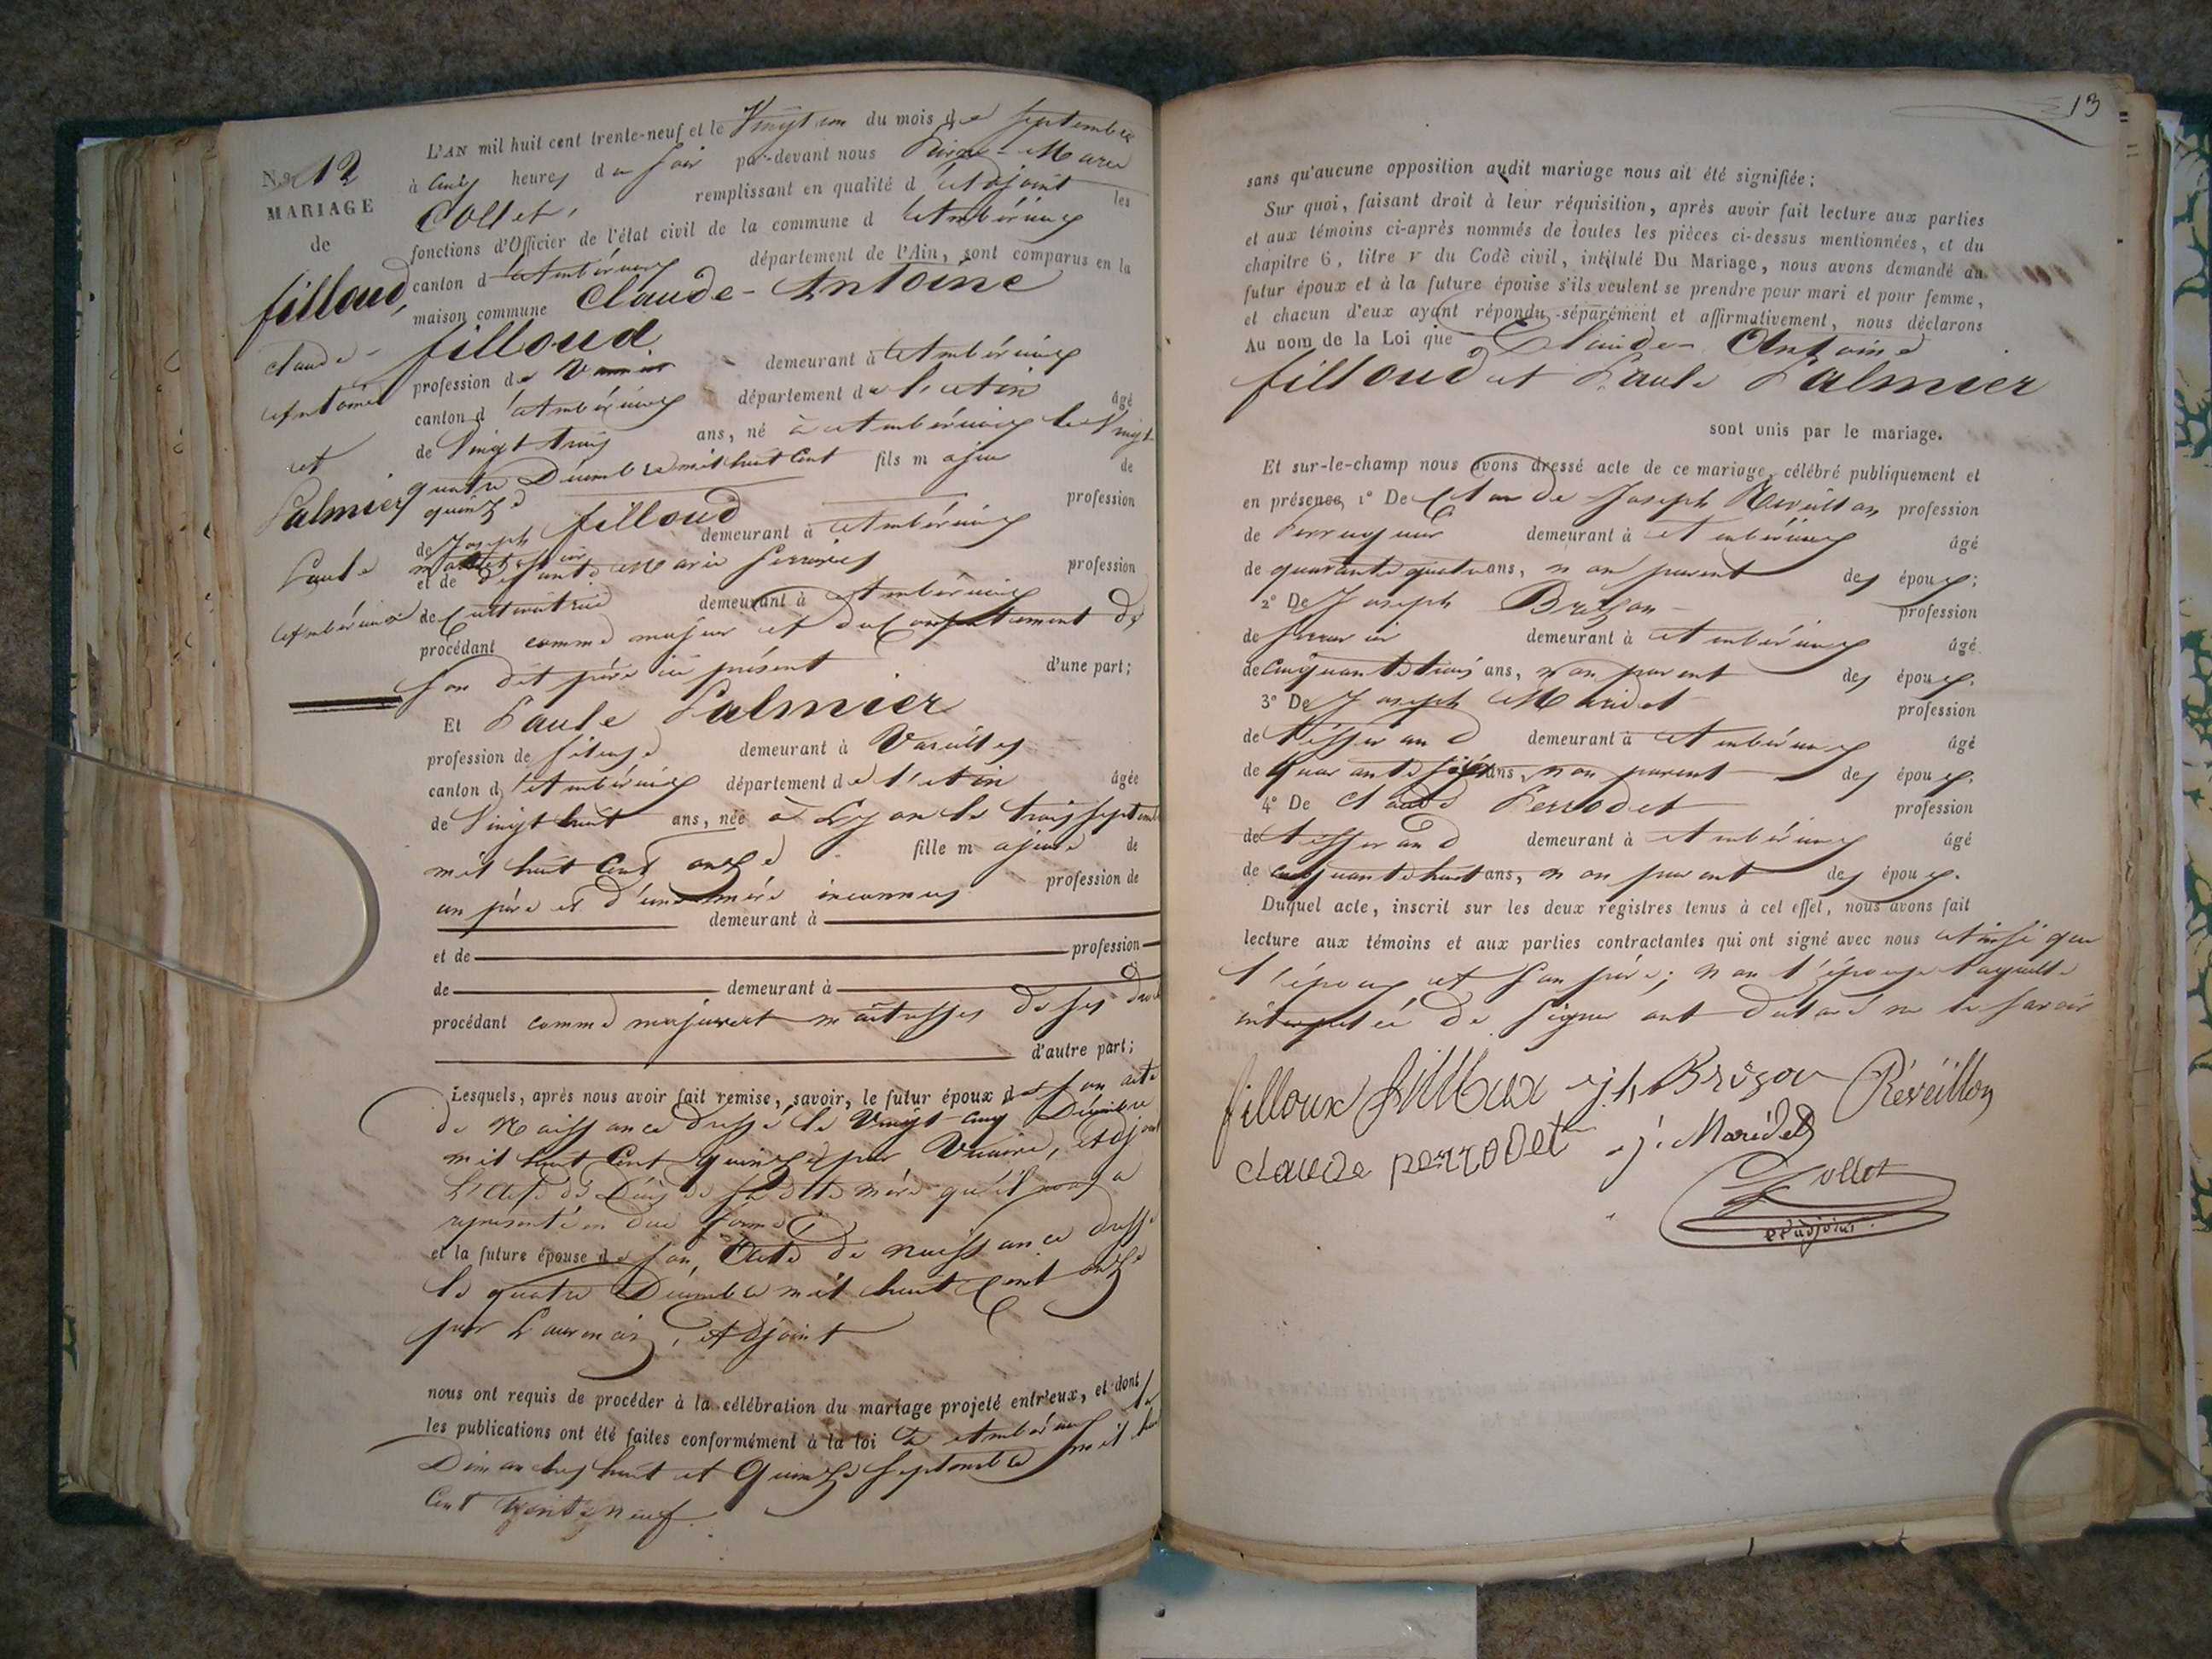 N.o 12
MARIAGE
de
filloud,
claude-
Antoine
et
Palmier
Paule
Ambérieux
L'AN mil huit cent trente-neuf et le Vingt un du mois de Septembre
à Cinq heures du soir par-devant nous Pierre-Marie
Collet, remplissant en qualité d'Adjoint les
fonctions d'Officier de l'état civil de la commune d'Ambérieux
canton d'Ambérieux département de l'Ain, sont comparus en la
maison commune Claude-Antoine
filloud demeurant à Ambérieux
profession de
canton d'Ambérieux département de l'Ain âgé
de Vingt trois ans, né à Ambérieux le Vingt
quatre Décembre mil huit Cent fils majeur de
quinze
de Joseph filloud profession
demeurant à Ambérieux
et de défunte Marie profession
de Cultivatrice demeurant à Ambérieux
procédant comme majeur et du Consentement de
son dit père ici présent d'une part;
Et Paule Palmier
profession de fileuse demeurant à Vareilles
canton d'Ambérieux département de l'Ain âgée
de Vingt huit ans, née à Lyon le trois Septembre
mil huit Cent onze fille majeure de
un père et d'une mère inconnus profession de
demeurant à
et de profession
de demeurant à
procédant comme majeure et maîtresse de ses droits
d'autre part;
Lesquels, après nous avoir fait remise, savoir, le futur époux de son acte
de Naissance dressé le Vingt-cinq Décembre
mil huit Cent quinze par Adjoint
L'acte de Décès de sa dite mère qu'il nous a
représenté en due forme
et la future épouse de son Acte de naissance dressé
le quatre Décembre mil huit Cent onze
par Adjoint
nous ont requis de procéder à la célébration du mariage projeté entr'eux, et dont
les publications ont été faites conformément à la loi à Ambérieux les
Dimanches huit et Quinze Septembre mil huit
Cent trente neuf.
13
sans qu'aucune opposition audit mariage nous ait été signifiée;
Sur quoi, faisant droit à leur réquisition, après avoir fait lecture aux parties
et aux témoins ci-après nommés de toutes les pièces ci-dessus mentionnées, et du
chapitre 6, titre V du Code civil, intitulé Du Mariage, nous avons demandé au
futur époux et à la future épouse s'ils veulent se prendre pour mari et pour femme,
et chacun d'eux ayant répondu séparément et affirmativement, nous déclarons
Au nom de la Loi que Claude-Antoine
filloud et Paule Palmier
sont unis par le mariage.
Et sur-le-champ nous avons dressé acte de ce mariage, célébré publiquement et
en présence, 1° De Claude Joseph Réveillon profession
de Perruquier demeurant à Ambérieux âgé
de quarante quatre ans, non parent des époux;
2° De Joseph Brezon profession
de demeurant à Ambérieux âgé
de Cinquante trois ans, non parent des époux.
3° De Joseph Maridet profession
de tisserand demeurant à Ambérieux âgé
de quarante ans, non parent des époux.
4° De Claude Perrodet profession
de tisserand demeurant à Ambérieux âgé
de cinquante huit ans, non parent des époux.
Duquel acte, inscrit sur les deux registres tenus à cet effet, nous avons fait
lecture aux témoins et aux parties contractantes qui ont signé avec nous Ainsi que
l'époux et son père; non l'épouse laquelle
de signer ont déclaré ne le savoir
filloux filloux j.h Brezon Réveillon
claude perrodet j. Maridet
Collet
adjoint.